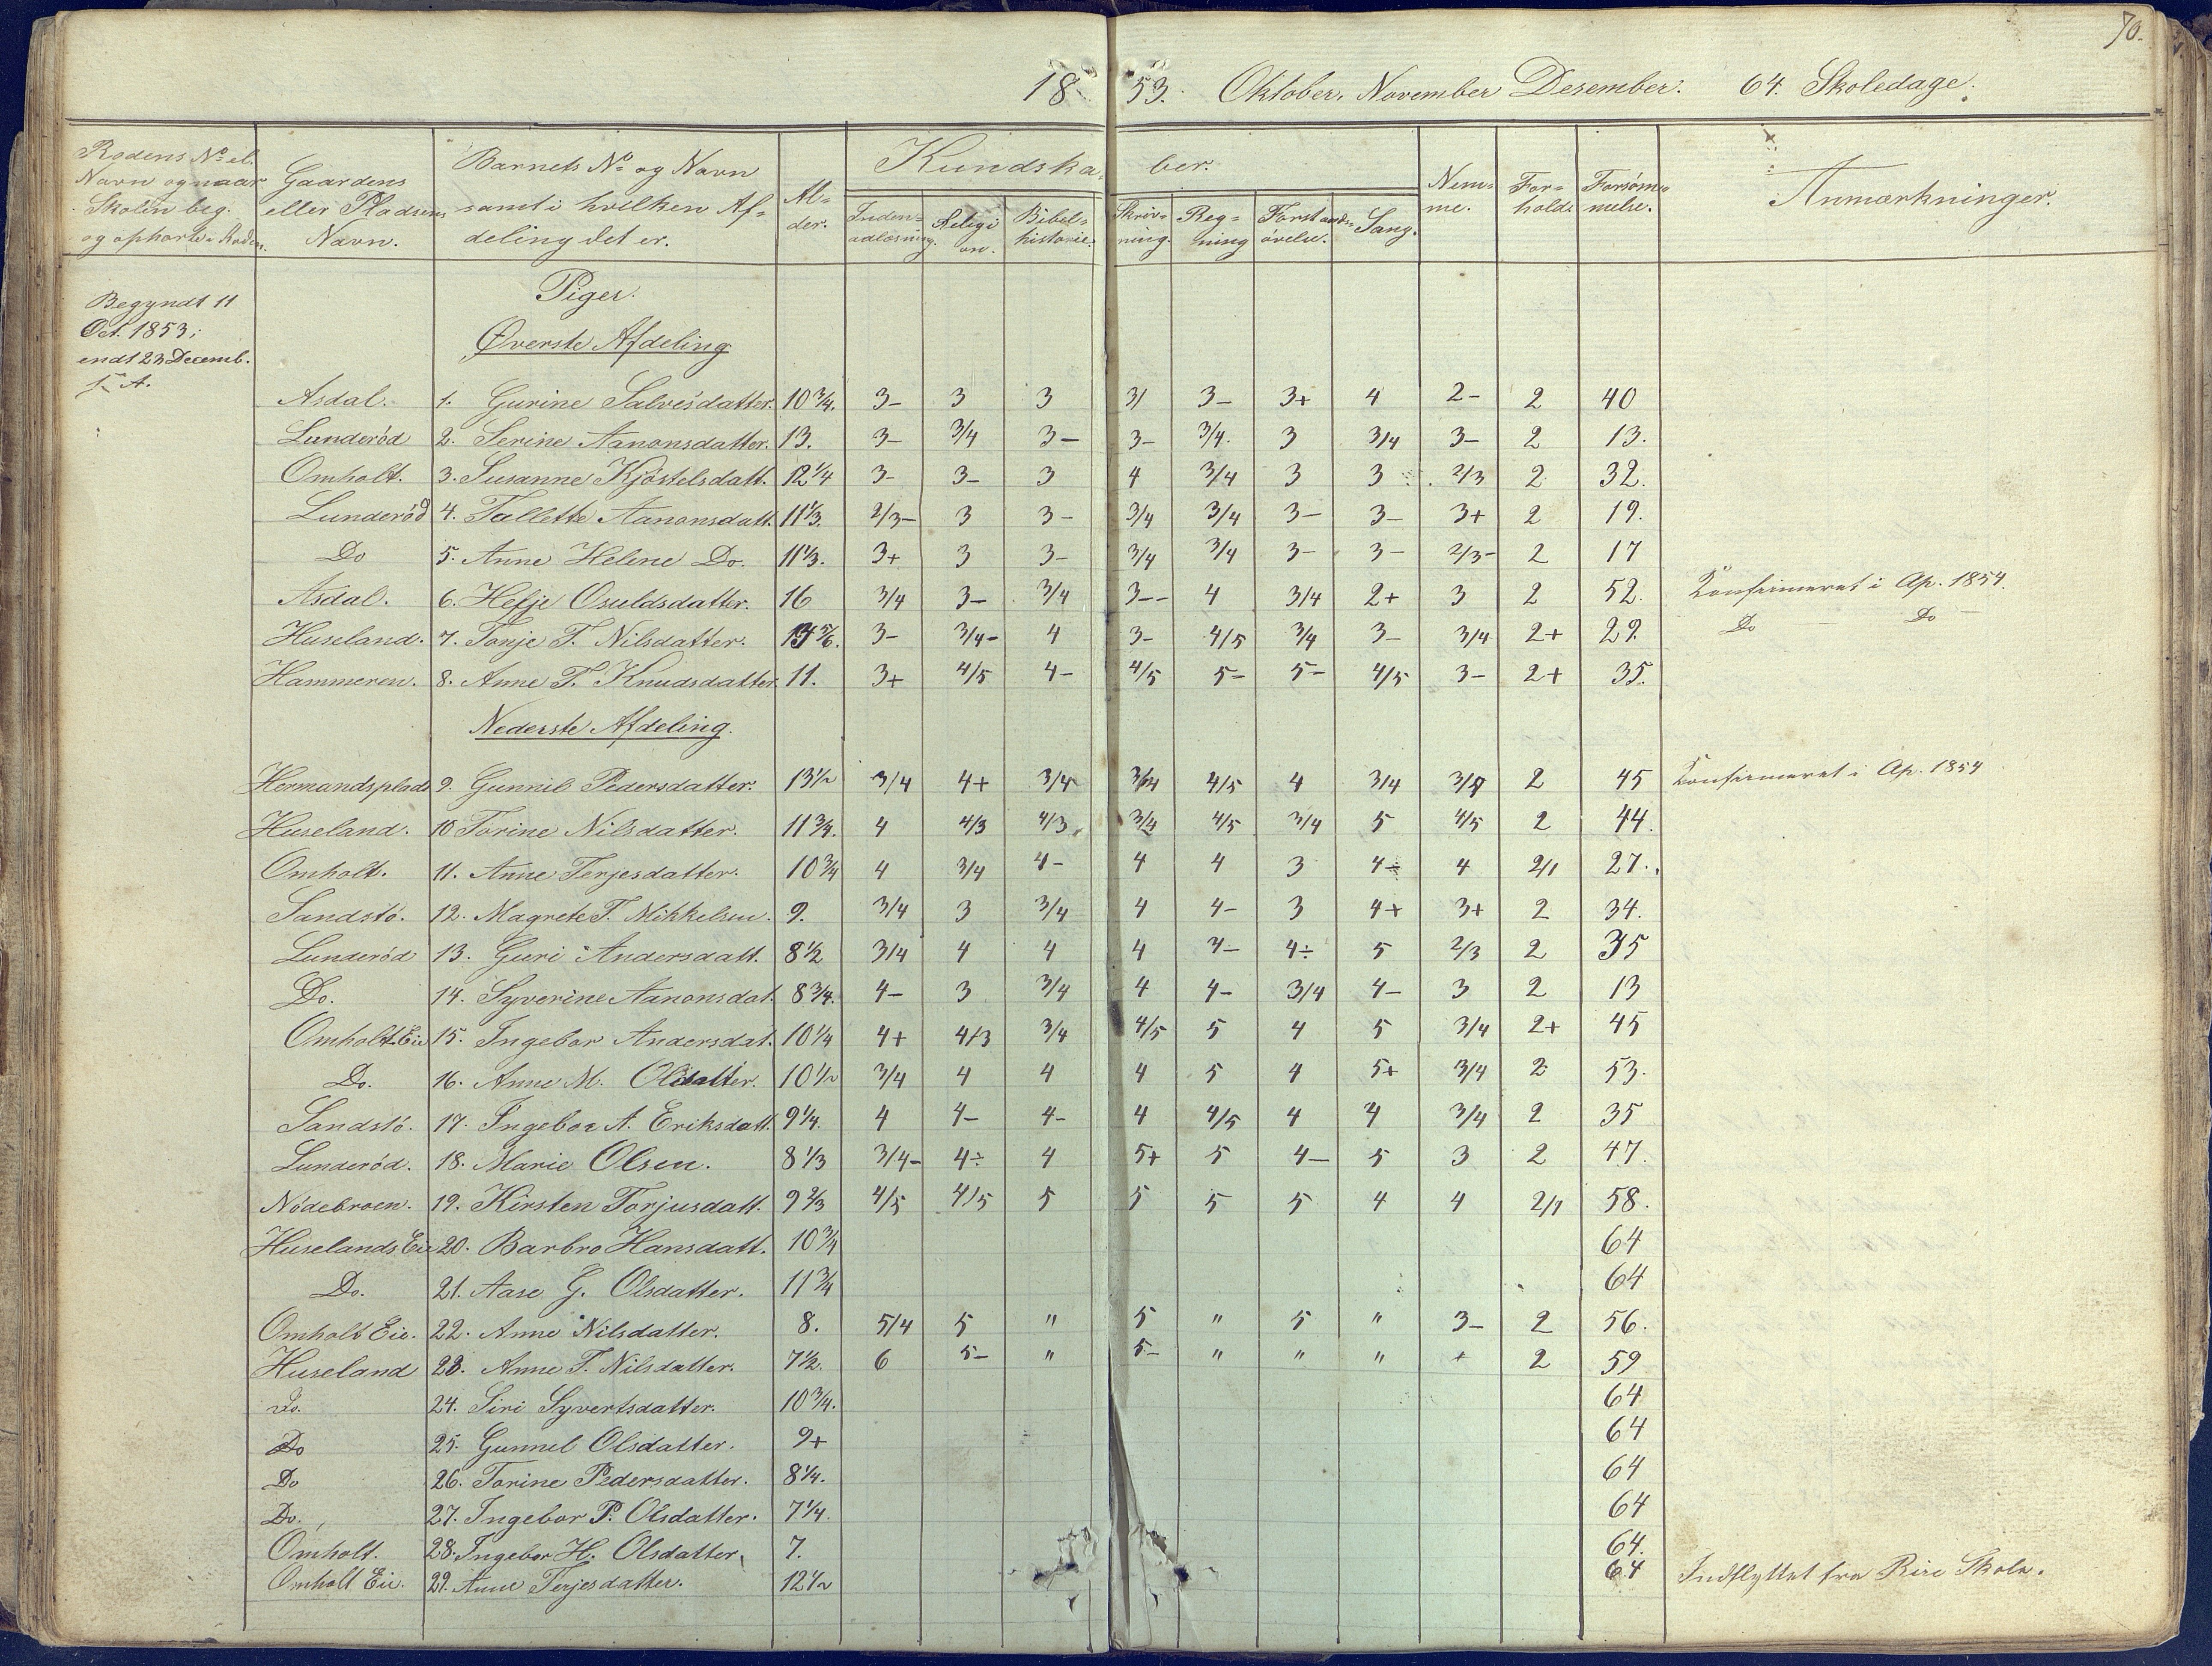 70.
1853. Oktober. November Desember. 64. Skoledage.
Rodens No el. Navn og naar Skolen beg. og ophørte i Roden.
Gaardens eller Pladsens Navn.
Barnets No og Navn samt i hvilken Afdeling det er.
Alder.
Kundskaber.
Indenadlæsning. Religion. Bibelhistorie. Skrivning. Regning Forstandsøvelse. Sang.
Nemme. Forhold. Forsømmelse.
Anmærkninger.
Begyndt 11
Oct. 1853;
endt 23 Decemb.
s. A.
Piger.
Øverste Afdeling
Asdal. 1. Gurine Salvesdatter. 10 3/4. 3- 3 3 3/ 3- 3+ 4 2- 2 40
Lunderöd 2. Serine Aanonsdatter. 13. 3- 3/4 3- 3- 3/4. 3 3/4 3- 2 13.
Omholt. 3. Susanne Kjöstelsdatt. 12 1/4 3- 3- 3 4 3/4 3 3 2/3 2 32.
Lunderöd 4. Tallette Aanonsdatt. 11 1/3. 2/3- 3 3- 3/4 3/4 3- 3- 3+ 2 19.
Do 5. Anne Helene Do. 11 1/3. 3+ 3 3- 3/4 3/4 3- 3- 2/3- 2 17
Asdal. 6. Helje Osuldsdatter. 16 3/4 3- 3/4 3-- 4 3/4 2+ 3 2 52. Konfirmeret i Ap. 1854.
Huseland. 7. Tonje T. Nilsdatter. 5/6. 3- 3/4- 4 3- 4/5 3/4 3- 3/4 2+ 29. Do — Do —
Hammeren. 8. Anne T. Knudsdatter 11. 3+ 4/5 4- 4/5 5- 5- 4/5 3- 2+ 35.
Nederste Afdeling.
Hermandsplads 9. Gunnil Pedersdatter. 13 1/2 3/4 4+ 3/4 3/4 4/5 4 3/4 3/4 2 45 Konfirmeret i Ap. 1854
Huseland. 10 Torine Nilsdatter. 11 3/4. 4 4/3 4/3 3/4 4/5 3/4 5 4/5 2 44.
Omholt. 11. Anne Terjesdatter. 10 3/4 4 3/4 4- 4 4 3 4÷ 4 2/1 27.
Sandstö. 12. Magrete T. Mikkelsen. 9. 3/4 3 3/4 4 4- 3 4+ 3+ 2 34.
Lunderöd 13. Guri Andersdatt. 8 1/2 3/4 4 4 4 4- 4÷ 5 2/3 2 35
Do. 14. Syverine Aanonsdat. 8 3/4. 4- 3 3/4 4 4- 3/4 4- 3 2 13
Omholt Eie 15. Ingebor Andersdat. 10 1/4 4+ 4/3 3/4 4/5 5 4 5 3/4 2+ 45
Do. 16. Anne M. Olsdatter. 10 1/2 3/4 4 4 4 5 4 5+ 3/4 2 53.
Sandstö. 17. Ingebor A. Eriksdatt. 9 1/4. 4 4- 4- 4 4/5 4 4 3/4 2 35
Lunderöd. 18. Marie Olsen. 8 1/3 3/4- 4÷ 4 5+ 5 4- 5 3 2 47.
Nödebroen. 19. Kirsten Torjusdatt. 9 2/3 4/5 4/5 5 5 5 5 4 4 2/1 58.
Huselands Eie 20. Barbro Hansdatt. 10 3/4 64
Do. 21. Aase G. Olsdatter. 11 3/4 64
Omholt Eie. 22. Anne Nilsdatter. 8. 5/4 5 " 5 " 5 " 3- 2 56.
Huseland 23. Anne T. Nilsdatter. 7 1/2. 6 5- " 5- " " " + 2 59
Do. 24. Siri Syvertsdatter. 10 3/4. 64
Do 25. Gunnel Olsdatter. 9+ 64
Do 26. Torine Pedersdatter. 8 1/4. 64
Do. 27. Ingebor P. Olsdatter. 7 1/4. 64
Omholt. 28. Ingebor H. Olsdatter. 7. 64.
Omholt Eie. 29. Anne Terjesdatter. 12 1/2 64 Indflyttet fra Rise Skole.